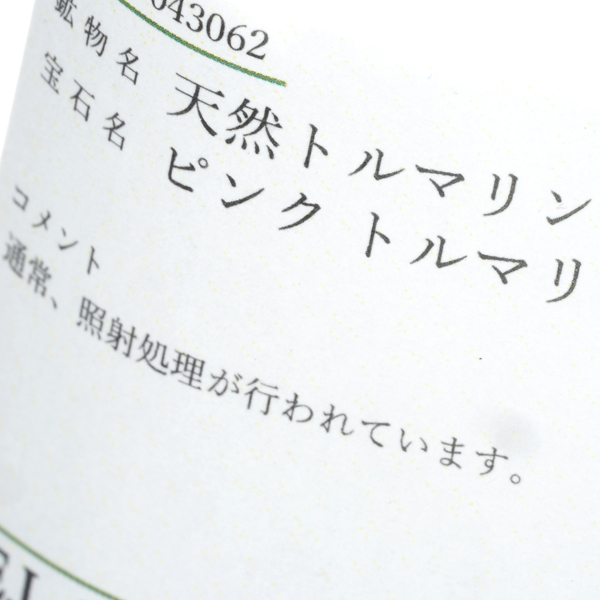 043062
鉱物名 天然トルマリン
宝石名 ピンクトルマリ
コメント
通常、照射処理が行われています。